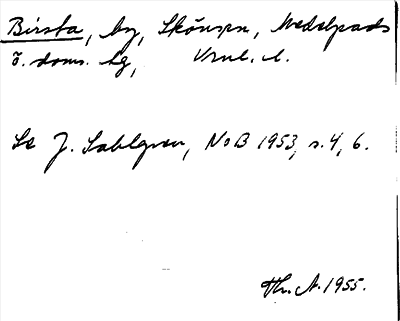 Birsta, by, Skönsm, Medelpads
ö. doms. hg, Vrnl. l.
Se J. Sahlgren, NoB 1953, s. 4, 6.
Hr. A. 1955.